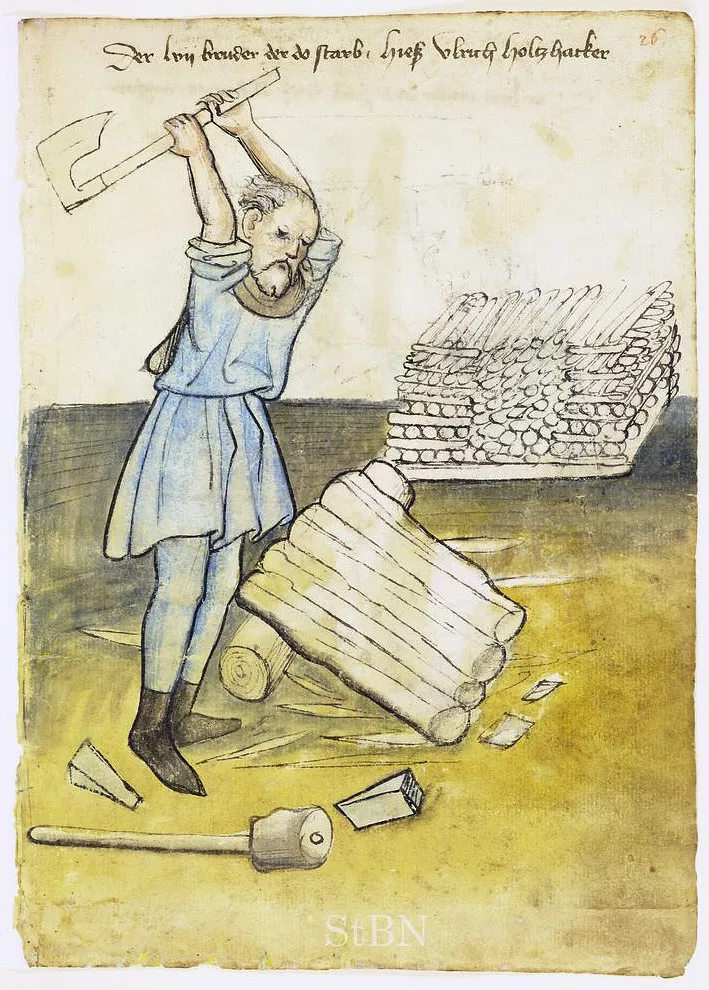 Der lvii bruder der do starb hieß Vlrich holtzhacker
26
StBN